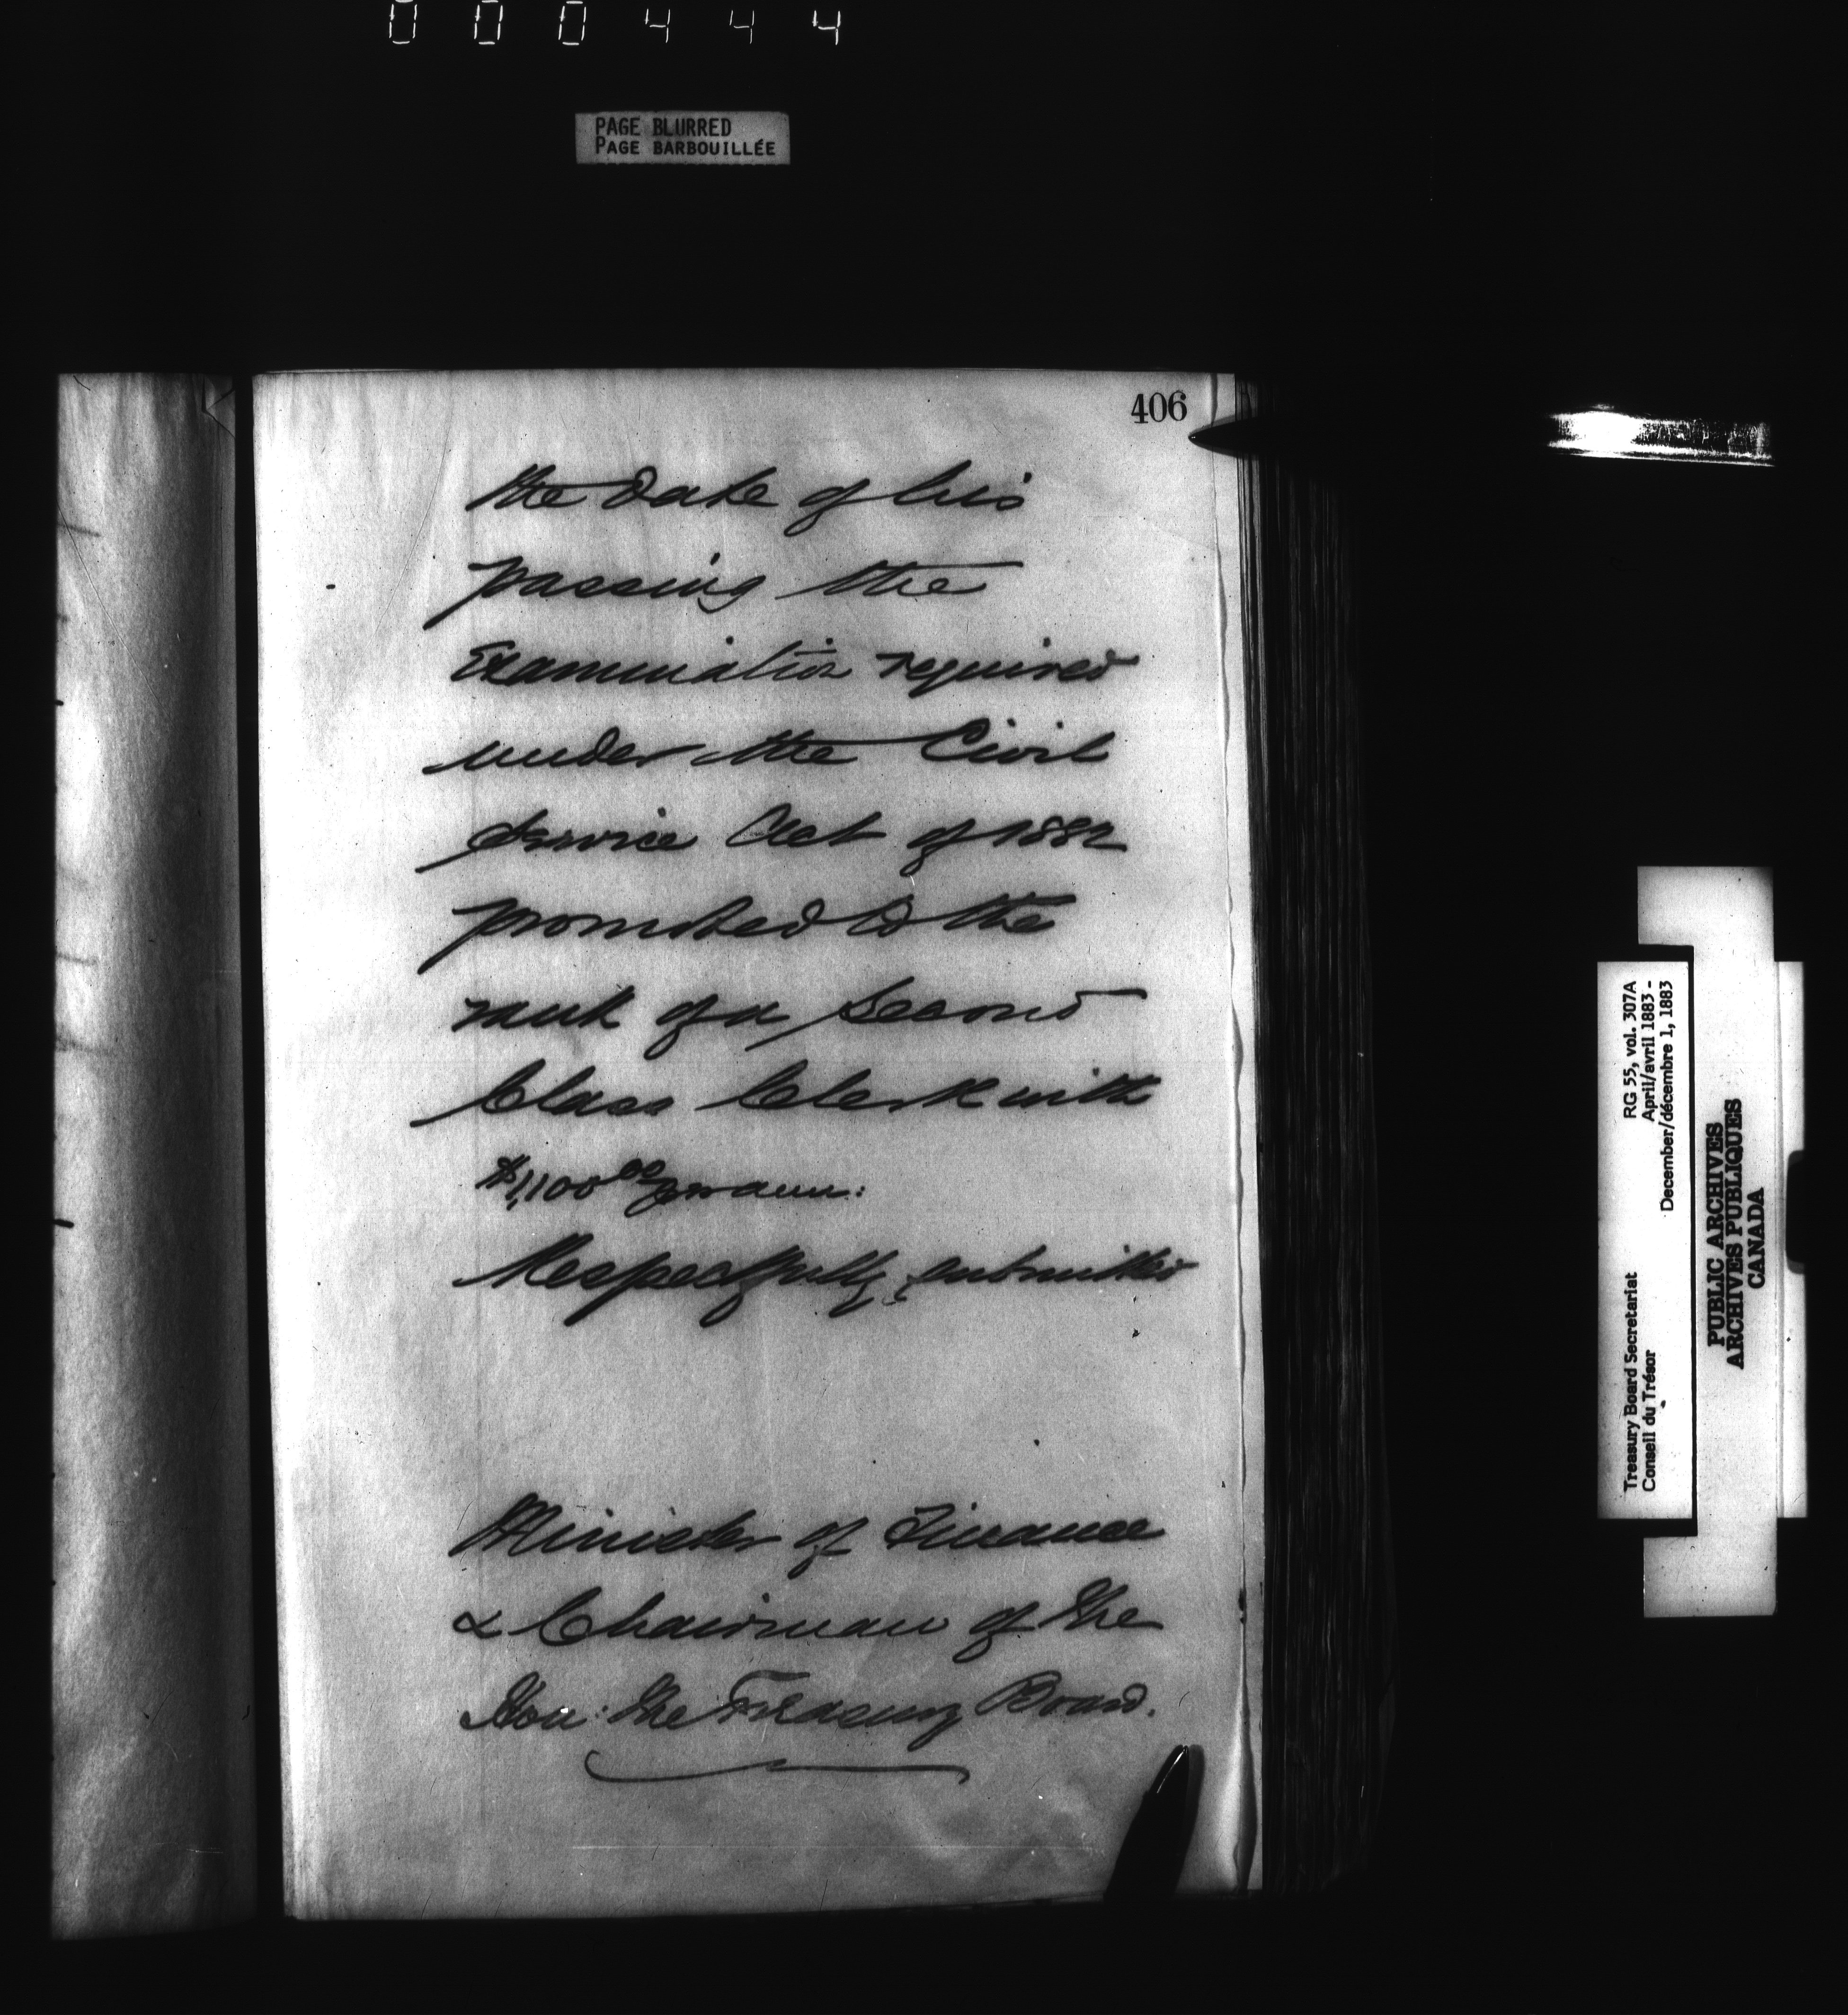 000444
PAGE BLURRED
PAGE BARBOUILLÉE
406
the date of his
passing the
Examination required
under the Civil
Service Act of 1882
promoted to the
rank of a Second
Class Clerk with
$1,100 00 per ann:
Respectfully submitted
Minister of Finance
& Chairman of the
Hon: the Treasury Board.
Treasury Board Secretariat RG 55, vol. 307A
Conseil du Trésor April/avril 1883 -
December/décembre 1, 1883
PUBLIC ARCHIVES
ARCHIVES PUBLIQUES
CANADA